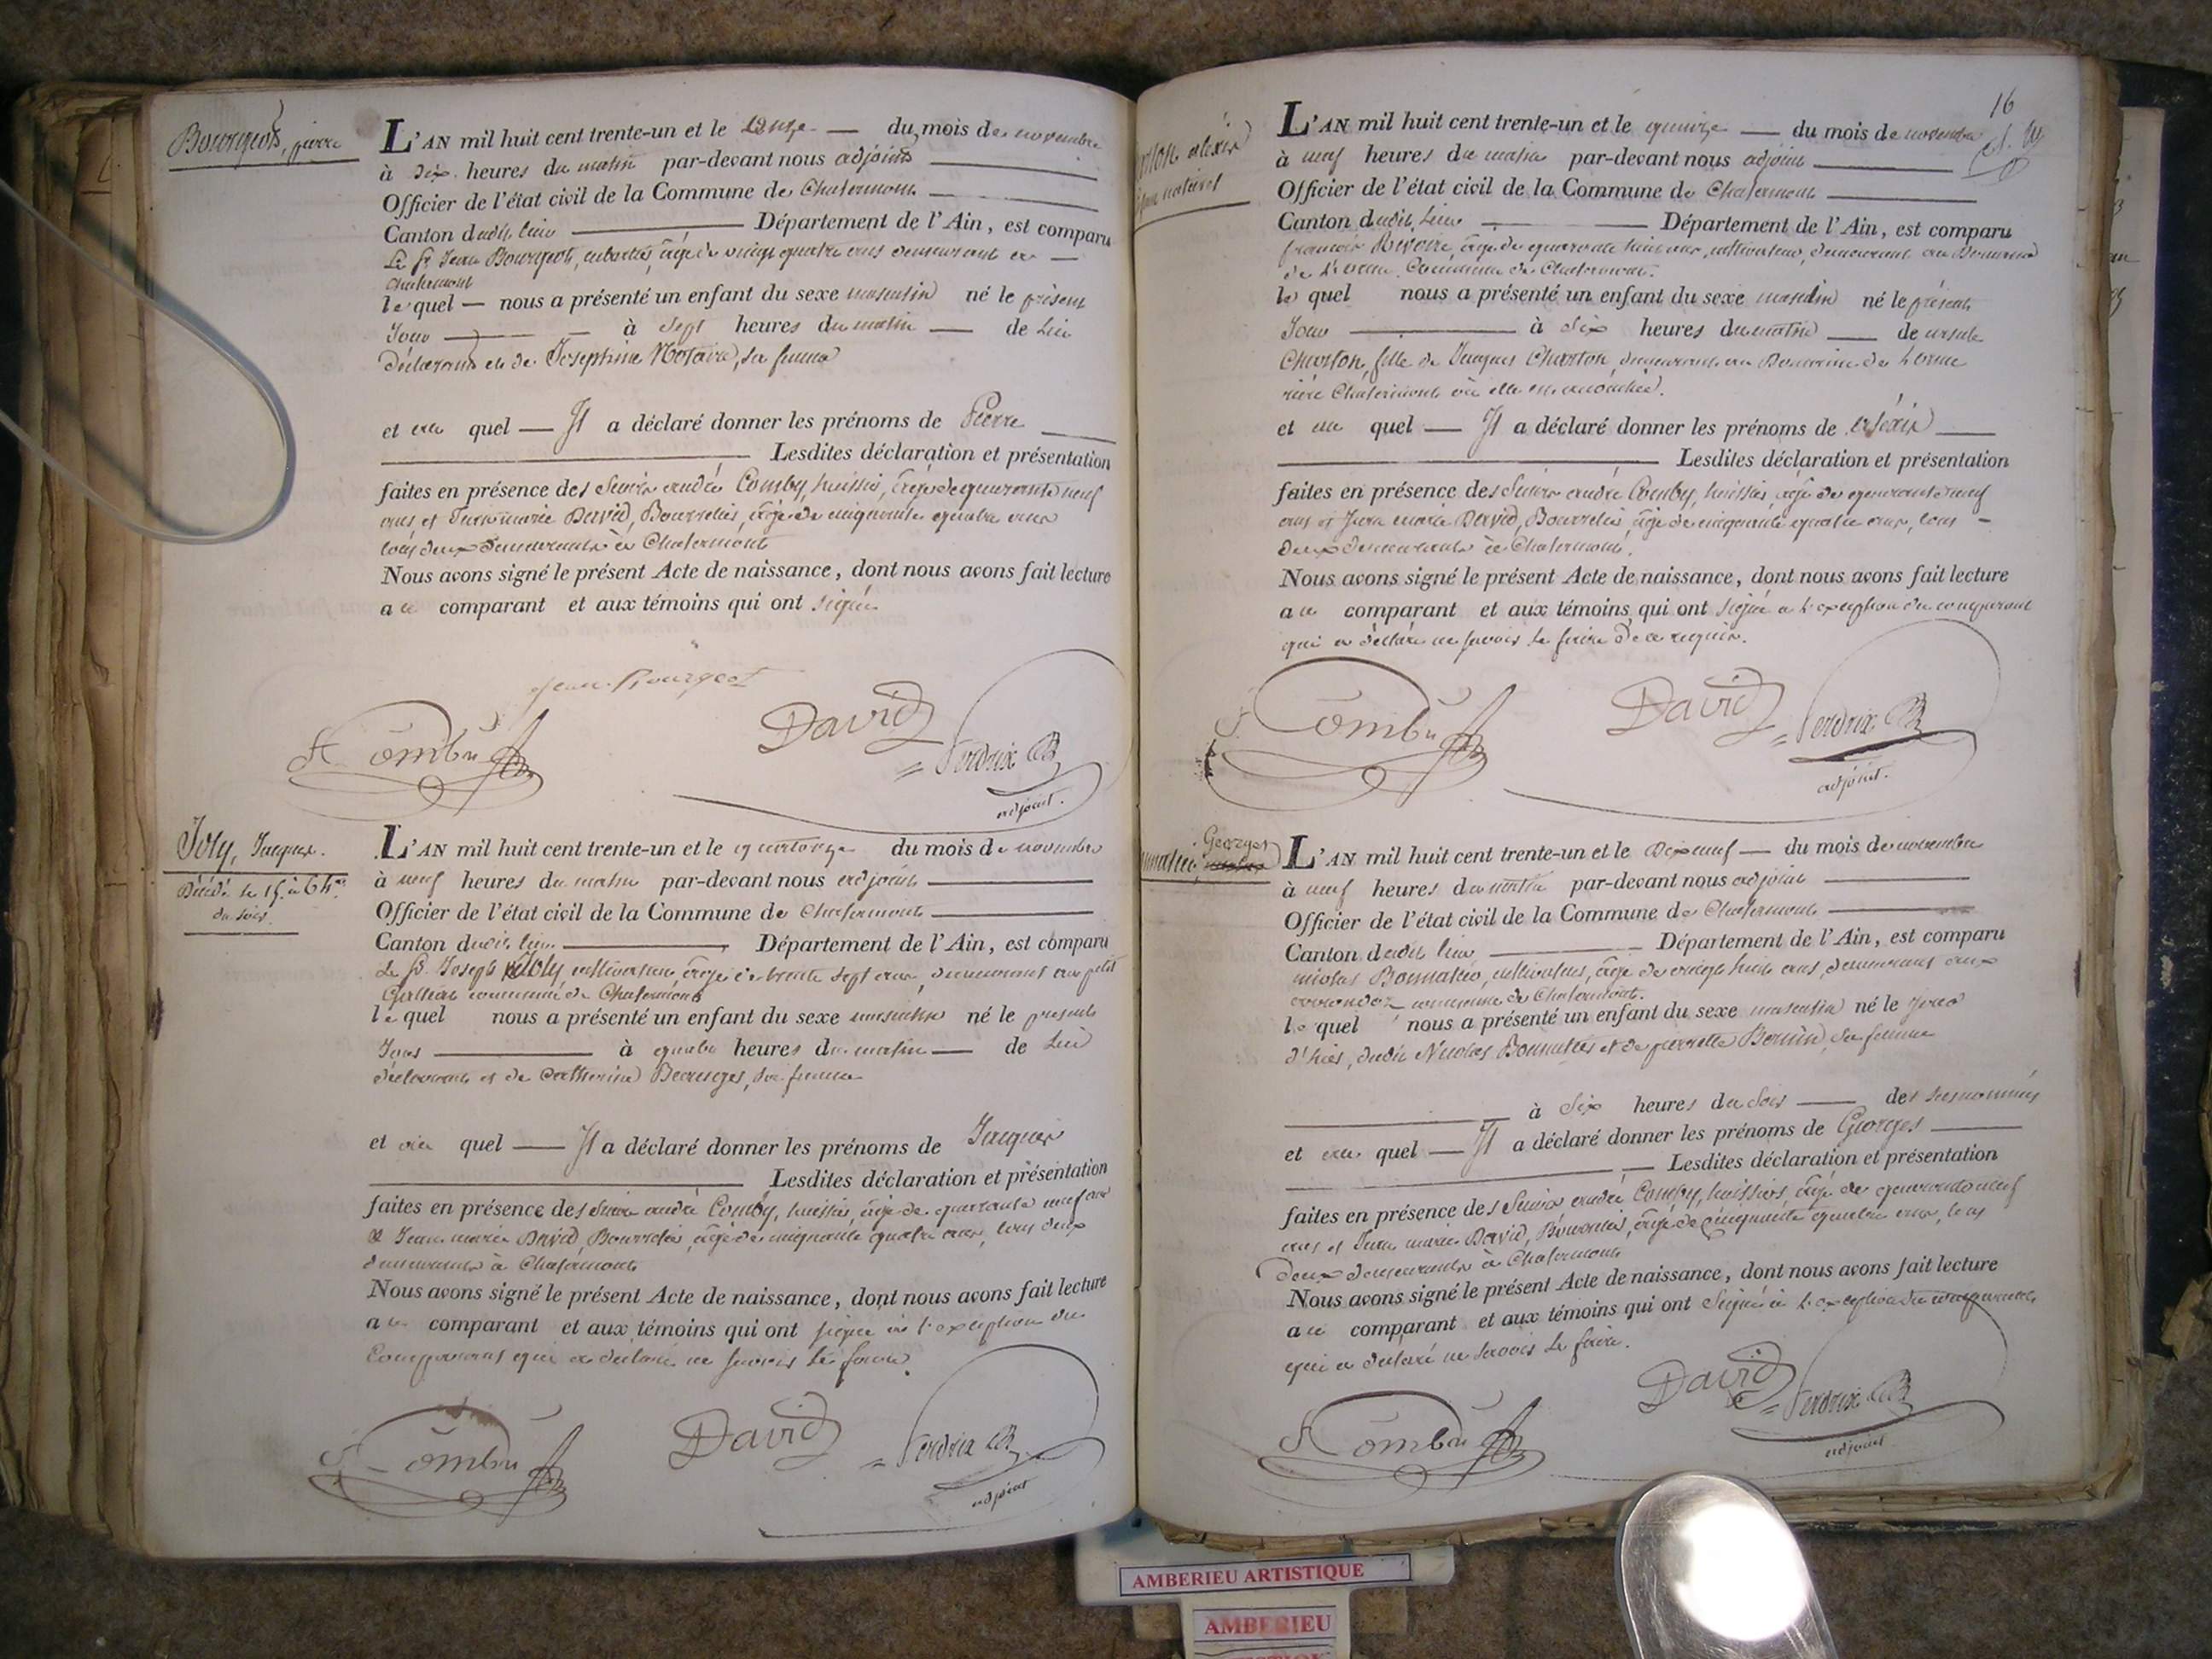 Bourgeot, pierre
L'AN mil huit cent trente-un et le onze du mois de novembre
à dix heures du matin par-devant nous adjoint
Officier de l'état civil de la Commune de Chalamont
Canton dudit lieu Département de l'Ain, est comparu
Le Sr Jean Bourgeot, agé de vingt quatre ans demeurant a
Chalamont
lequel nous a présenté un enfant du sexe masculin né le présent
Jour à sept heures du matin de lui
déclarant et de Josephine sa femme
et au quel Il a déclaré donner les prénoms de Pierre
Lesdites déclaration et présentation
faites en présence des Sieurs andré Comby, huissier, âgé de quarante neuf
ans et Jean marie David, Bourrelier, âgé de cinquante quatre ans
tous deux demeurants à Chalamont
Nous avons signé le présent Acte de naissance, dont nous avons fait lecture
au comparant et aux témoins qui ont signé.
Jean Bourgeot
David
Perdrix
adjoint.
Joly, Jacques.
Décédé le 15. à 6 h
du soir.
L'AN mil huit cent trente-un et le quatorze du mois de novembre
à neuf heures du matin par-devant nous adjoint
Officier de l'état civil de la Commune de Chalamont
Canton dudit lieu Département de l'Ain, est comparu
Le Sr Joseph Joly cultivateur âgé de trente sept ans, demeurant au petit
commune de Chalamont
lequel nous a présenté un enfant du sexe masculin né le présent
Jour à quatre heures du matin de lui
déclarant et de Catherine sa femme
et au quel Il a déclaré donner les prénoms de Jacques
Lesdites déclaration et présentation
faites en présence des Sieurs andré Comby, huissier, âgé de quarante neuf ans
et Jean marie David, Bourrelier, âgé de cinquante quatre ans, tous deux
demeurants à Chalamont
Nous avons signé le présent Acte de naissance, dont nous avons fait lecture
au comparant et aux témoins qui ont signé à l'exception du
Comparant qui a déclaré ne savoir le faire.
David
Perdrix
adjoint
16
alexis
naturel
L'AN mil huit cent trente-un et le quinze du mois de novembre
à neuf heures du matin par-devant nous adjoint
Officier de l'état civil de la Commune de Chalamont
Canton dudit lieu Département de l'Ain, est comparu
françois Revoire, âgé de quarante huit ans, cultivateur, demeurant au Domaine
de Commune de Chalamont.
lequel nous a présenté un enfant du sexe masculin né le présent
Jour à six heures du matin de ursule
Charton, fille de Jacques Charton, demeurant au Domaine de
rière Chalamont où elle est accouchée.
et au quel Il a déclaré donner les prénoms de alexis
Lesdites déclaration et présentation
faites en présence des Sieurs andré Comby, huissier âgé de quarante neuf
ans et Jean marie David, Bourrelier âgé de cinquante quatre ans, tous
deux demeurants à Chalamont.
Nous avons signé le présent Acte de naissance, dont nous avons fait lecture
au comparant et aux témoins qui ont signé a l'exception du comparant
qui a déclaré ne savoir le faire de ce requis.
David
Perdrix
adjoint.
Georges
L'AN mil huit cent trente-un et le dix neuf du mois de novembre
à neuf heures du matin par-devant nous adjoint
Officier de l'état civil de la Commune de Chalamont
Canton dudit lieu Département de l'Ain, est comparu
nicolas cultivateur, âgé de vingt huit ans demeurant aux
commune de Chalamont.
lequel nous a présenté un enfant du sexe masculin né le jour
d'hier, dudit Nicolas et de pierrette sa femme
à six heures du soir des susnommés
et au quel Il a déclaré donner les prénoms de Georges
Lesdites déclaration et présentation
faites en présence des Sieurs andré Comby, huissier, âgé de quarante neuf
ans et Jean marie David, Bourrelier, âgé de cinquante quatre ans, tous
deux demeurants à Chalamont
Nous avons signé le présent Acte de naissance, dont nous avons fait lecture
au comparant et aux témoins qui ont signé à l'exception du comparant
qui a déclaré ne savoir le faire.
David
Perdrix
adjoint
AMBERIEU ARTISTIQUE
AMBERIEU